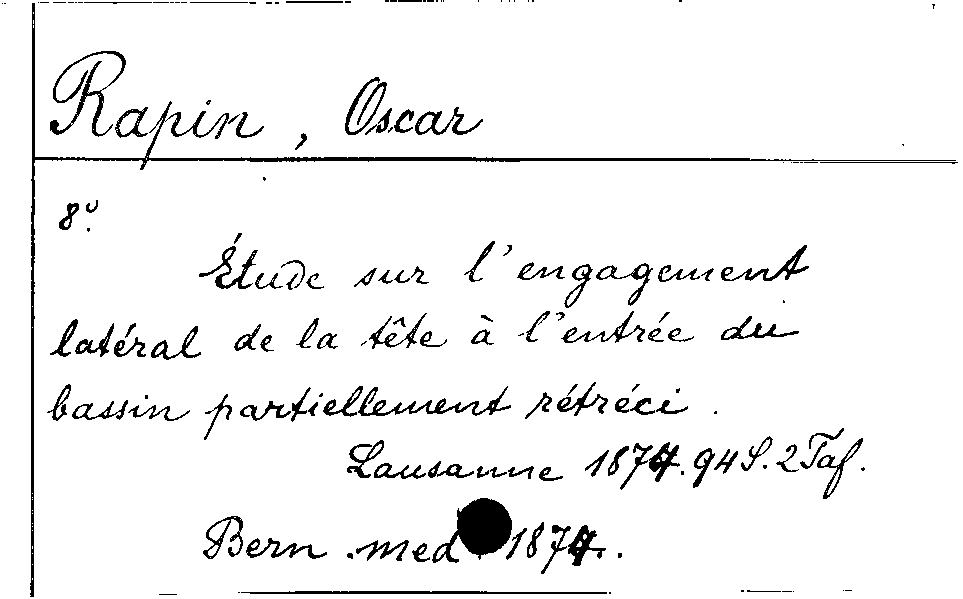 Rapin, Oscar
8º.
Étude sur l'engagement
latéral de la tête à l'entrée du
bassin partiellement rétréci.
Lausanne 1874. 94 S. 2 Taf.
Bern. med 1874.